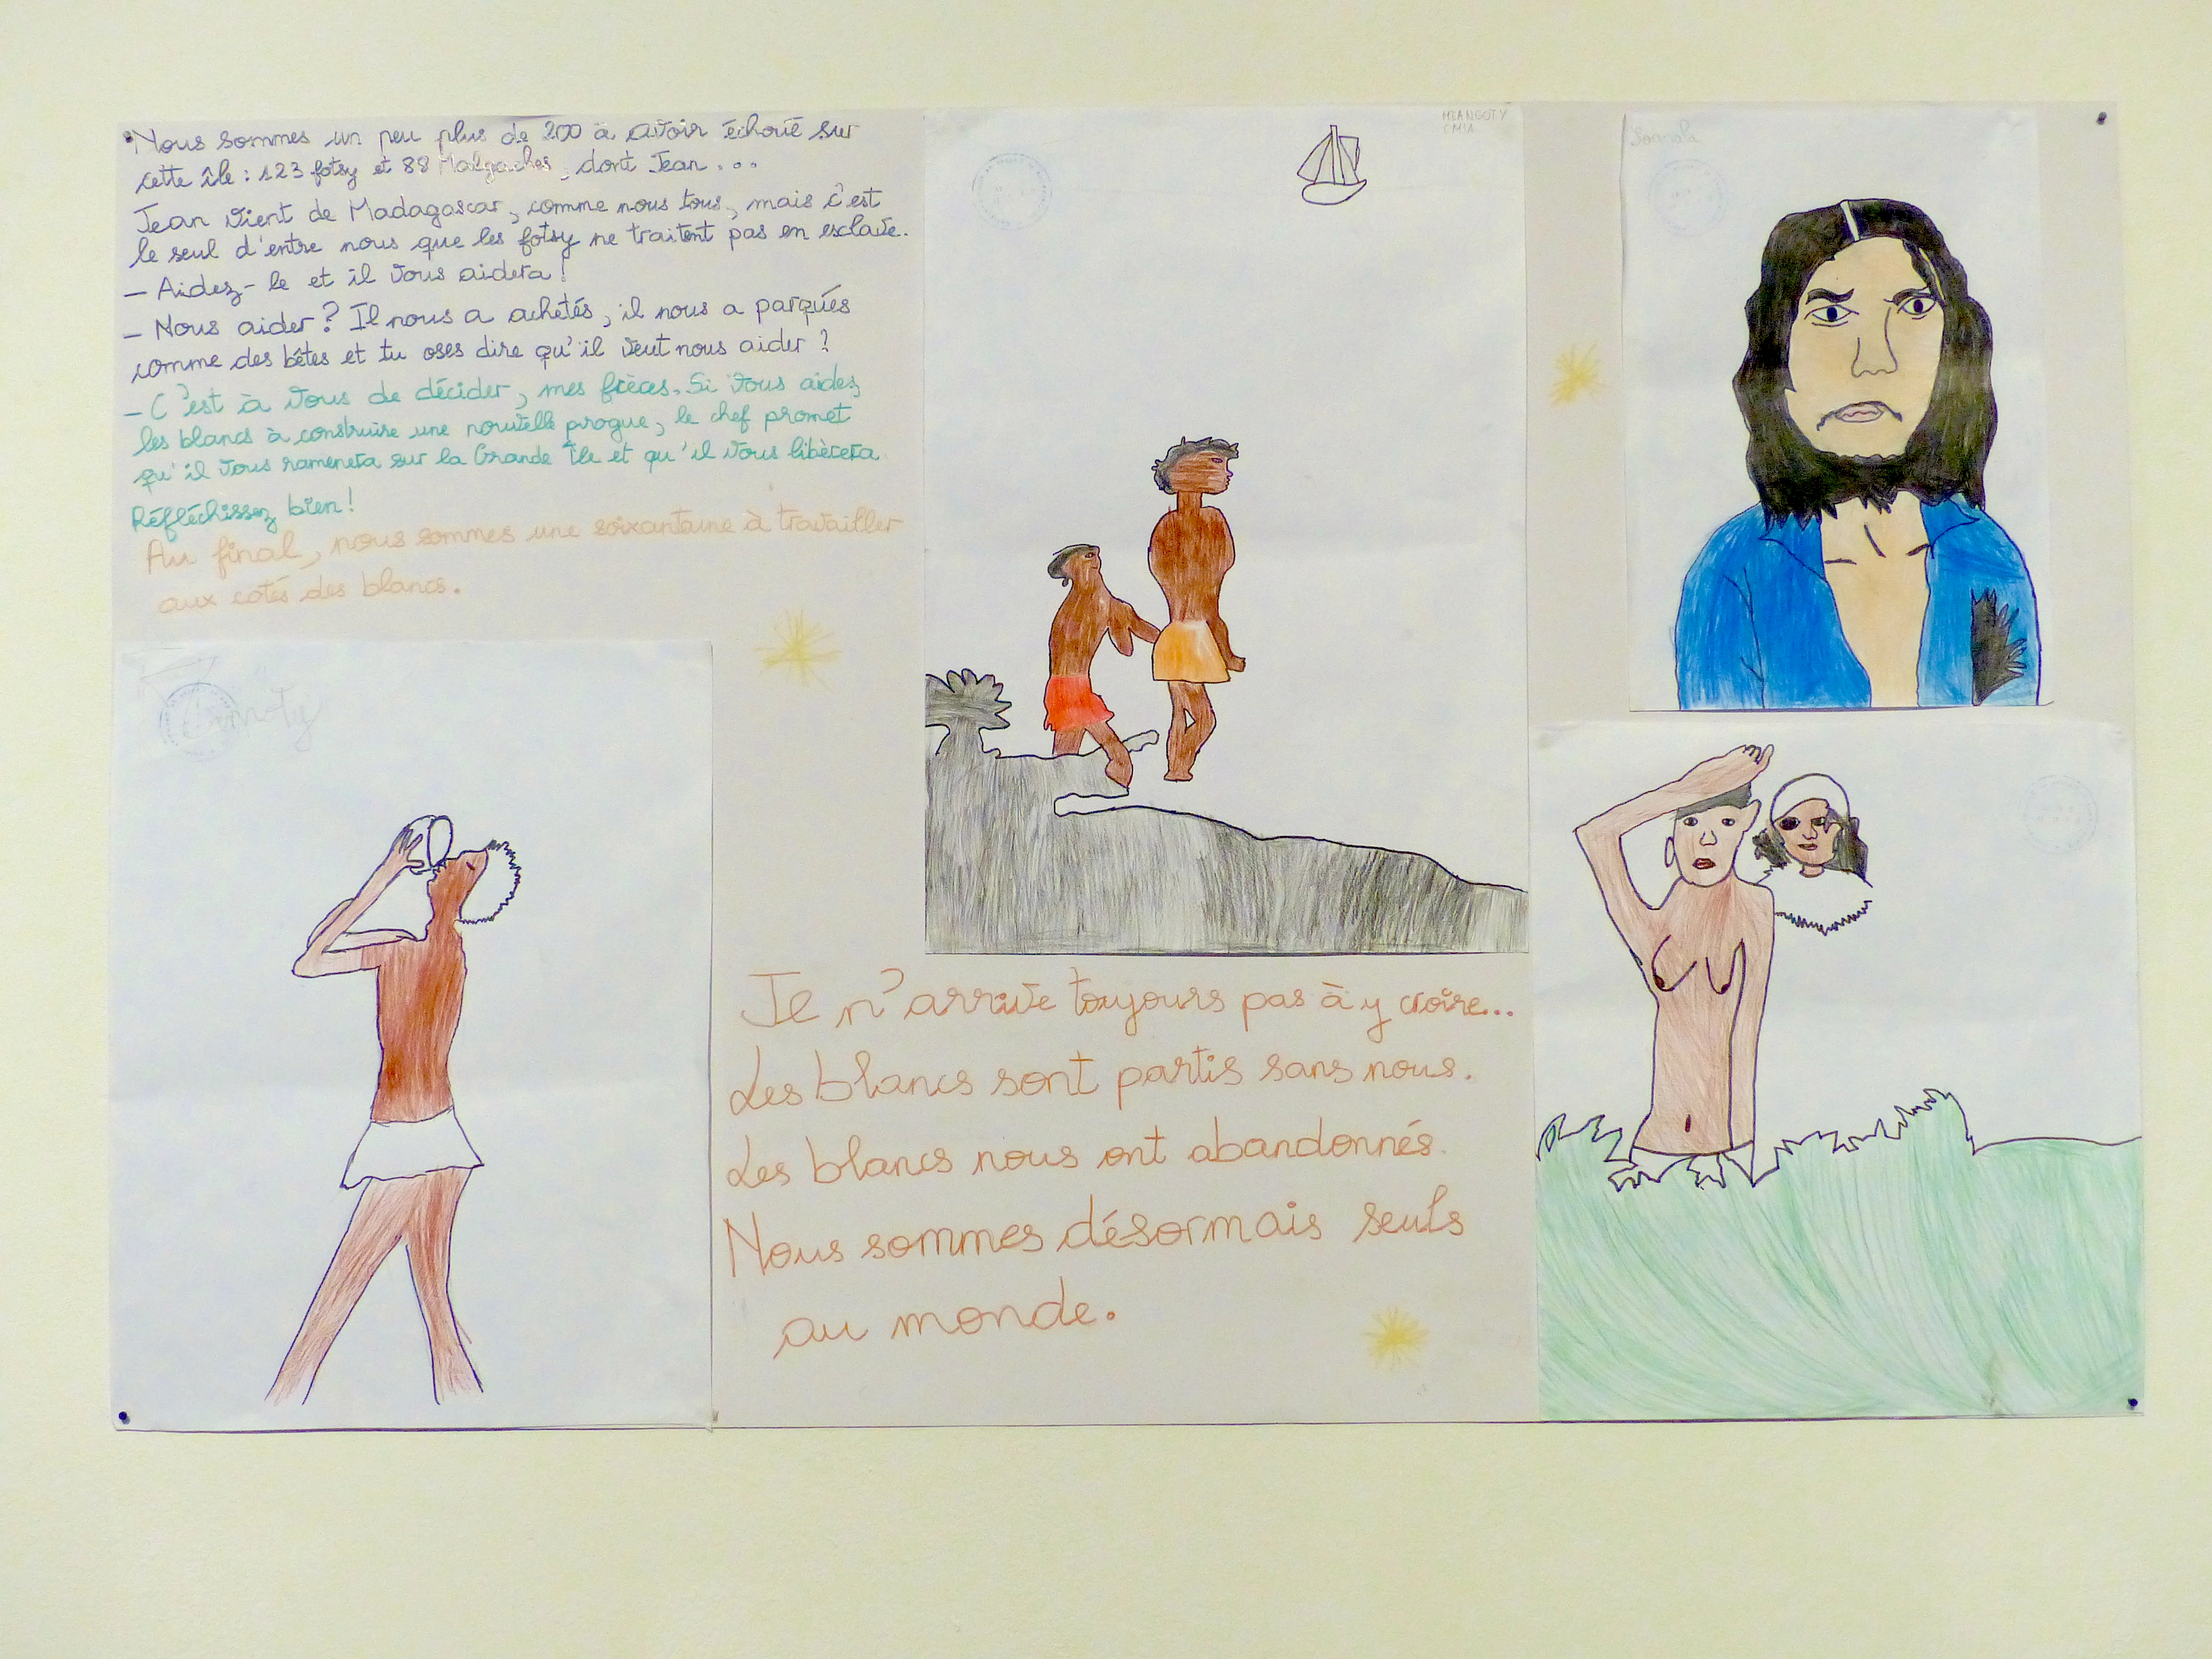 Nous sommes un peu plus de 200 à avoir échoué sur
cette île : 123 fotsy et 88 Malgaches, dont Jean...
Jean vient de Madagascar, comme nous tous, mais c'est
le seul d'entre nous que les fotsy ne traitent pas en esclave.
– Aidez-le et il vous aidera !
– Nous aider ? Il nous a achetés, il nous a parqués
comme des bêtes et tu oses dire qu'il veut nous aider ?
– C'est à vous de décider, mes frères. Si vous aidez
les blancs à construire une nouvelle pirogue, le chef promet
qu'il vous ramenera sur la Grande Île et qu'il vous libèrera
Réfléchissez bien !
Au final, nous sommes une soixantaine à travailler
aux cotés des blancs.
MIANGOTY
CM1A
Je n'arrive toujours pas à y croire...
Les blancs sont partis sans nous.
Les blancs nous ont abandonnés.
Nous sommes désormais seuls
au monde.